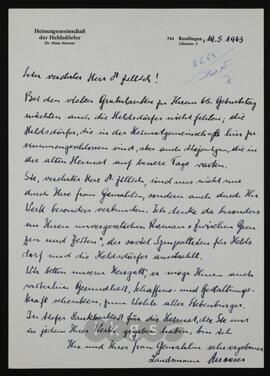 Heimatgemeinschaft
der Heldsdörfer
Dr. Hans Mooser
741 Reutlingen, 19.5.1963
Ulmenstr. 5
2.6.63
Sehr verehrter Herr Dr. Zillich!
Bei den vielen Gratulanten zu Ihrem 65. Geburtstag
möchten auch die Heldsdörfer nicht fehlen, die
Heldsdörfer, die in der Heimatgemeinschaft hier zu-
sammengeschlossen sind, aber auch diejenigen, die in
der alten Heimat auf bessere Tage warten.
Sie, verehrter Herr Dr. Zillich, sind uns nicht nur
durch Ihre Frau Gemahlin, sondern auch durch Ihr
Werk besonders verbunden. Ich denke da besonders
an Ihren unvergesslichen Roman "Zwischen Gren-
zen und Zeiten", der soviel Sympathie für Helds-
dorf und die Heldsdörfer ausstrahlt.
Wir bitten unseren Herrgott, er möge Ihnen auch
weiterhin Gesundheit, Schaffens- und Gestaltungs-
kraft schenken, zum Wohle aller Siebenbürger.
In tiefer Dankbarkeit für die Heimat, die Sie uns
in jedem Ihrer Werke gegeben haben, bin ich
Ihr und Ihrer Frau Gemahlin sehr ergebener
Landsmann Mooser